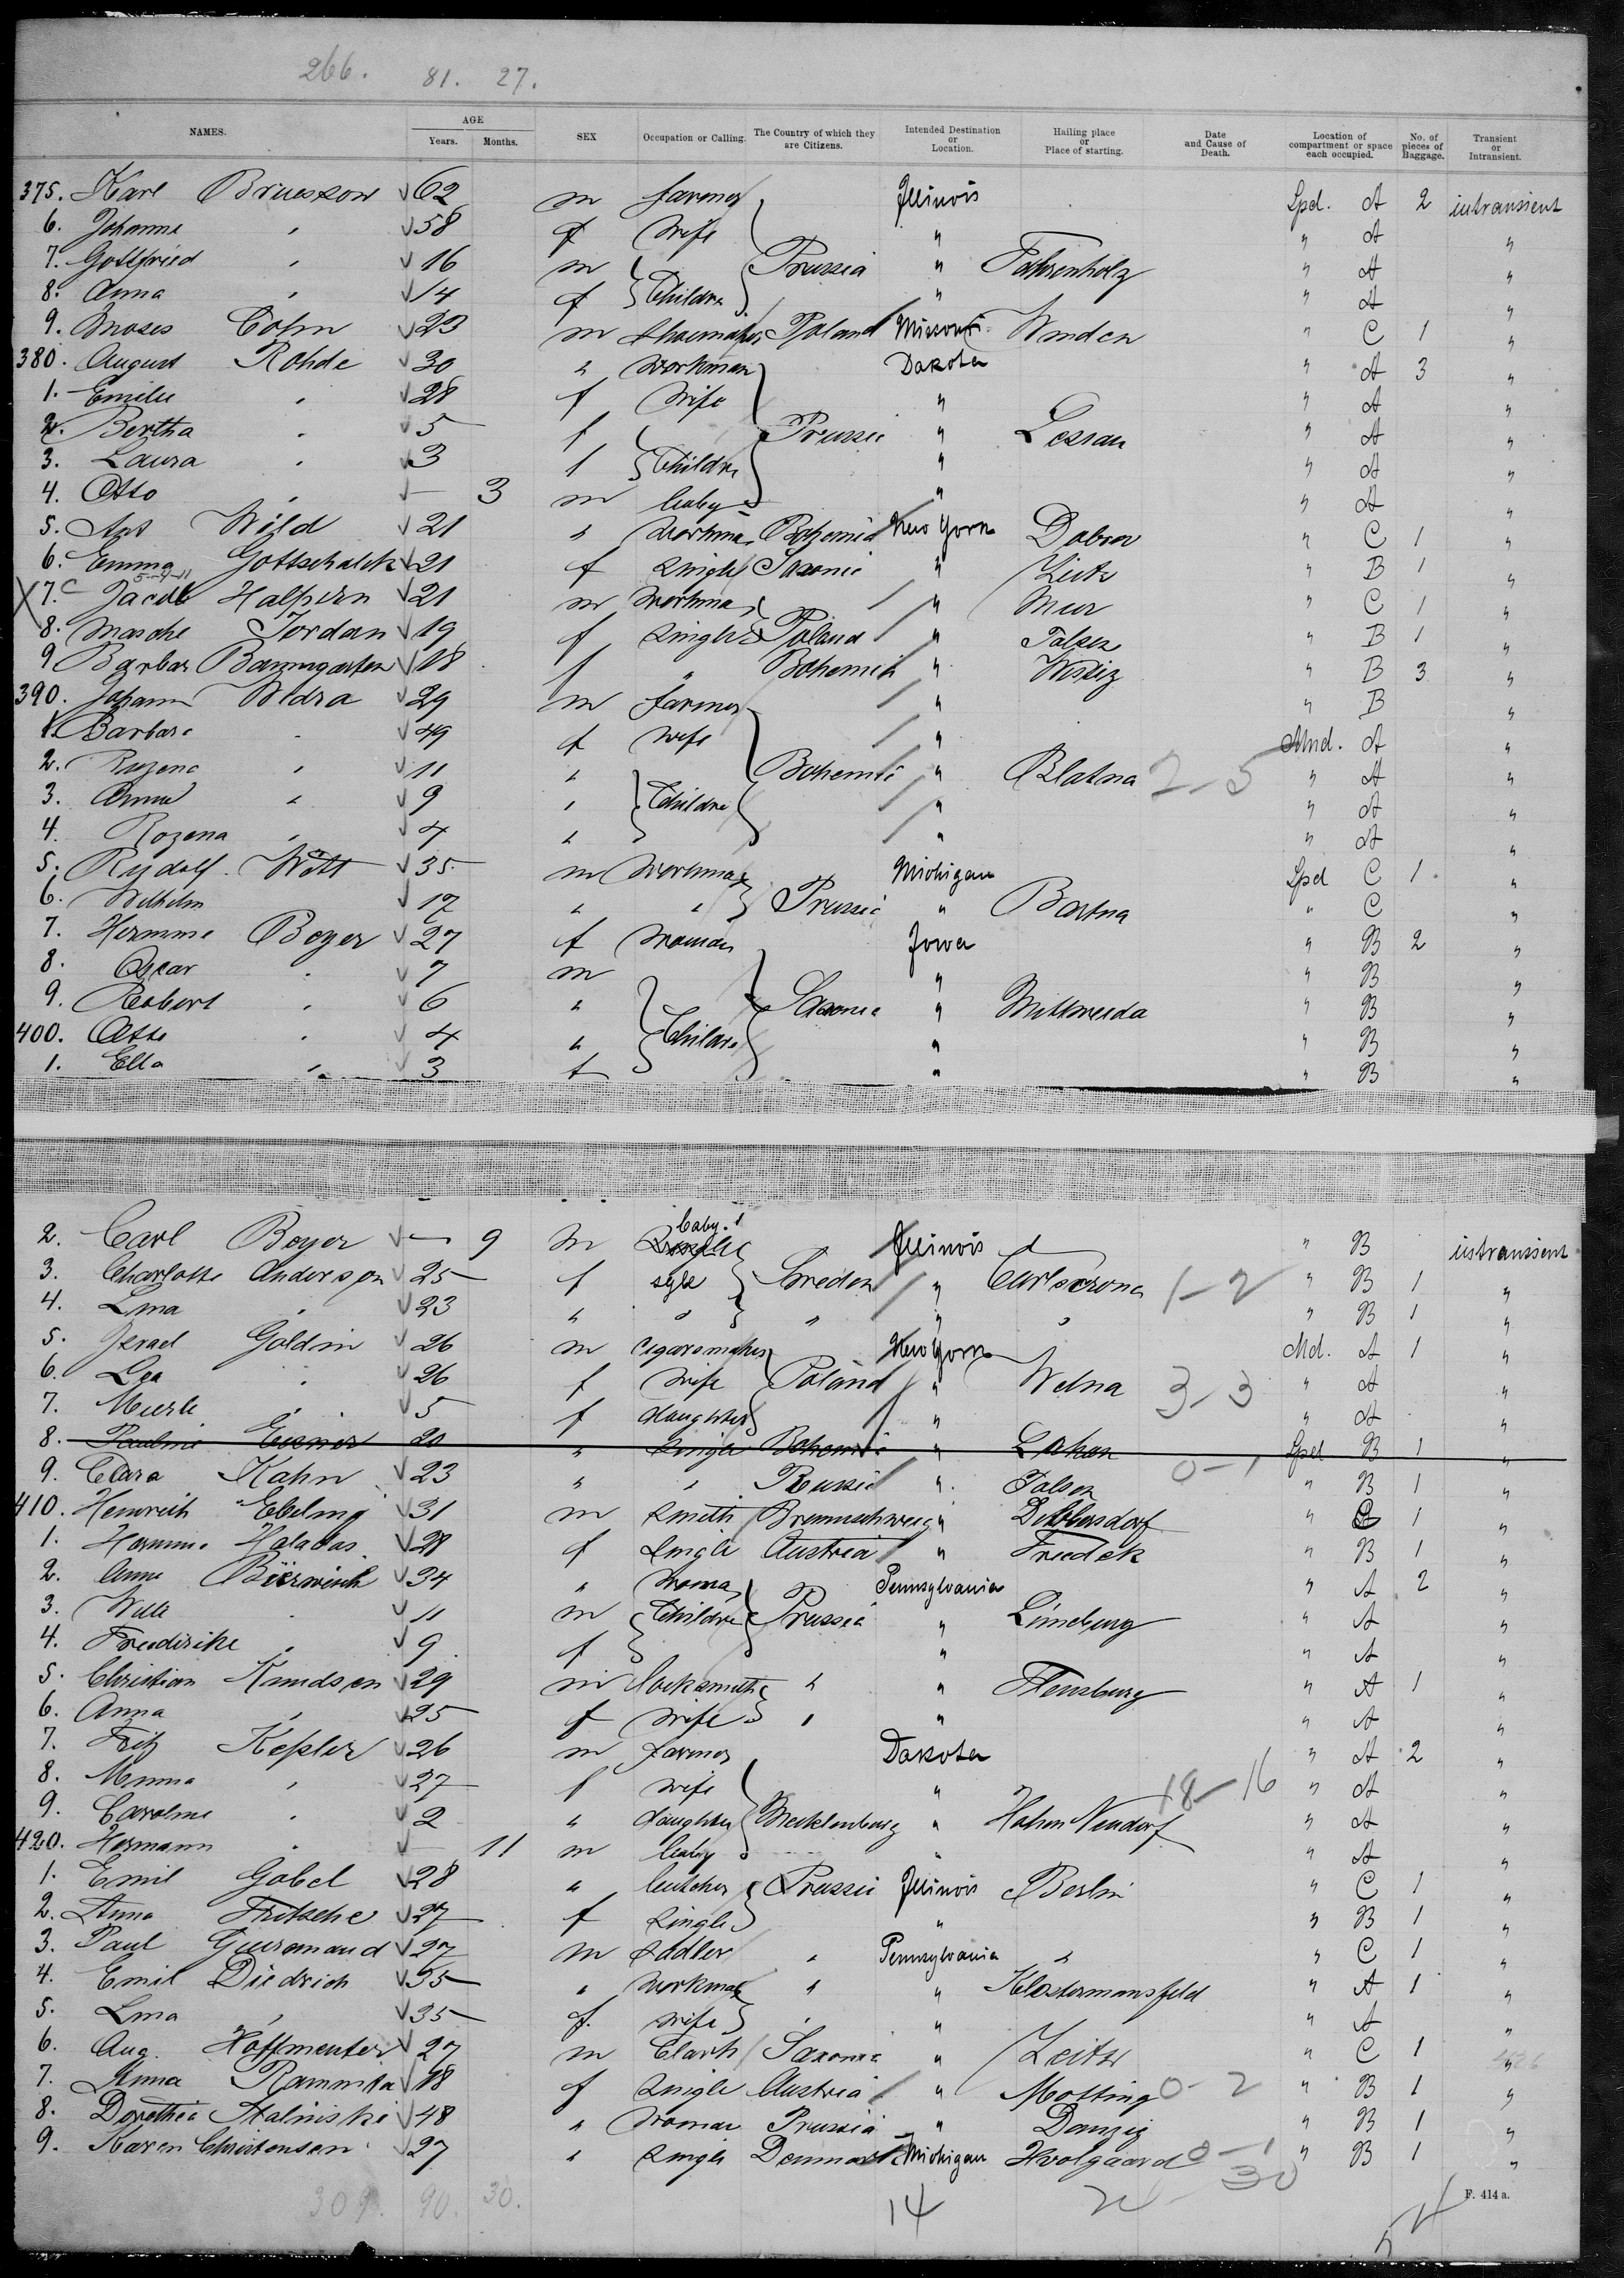 266. 81. 27.
NAMES. AGE Years. Months. SEX Occupation or Calling. The Country of which they are Citizens. Intended Destination or Location. Hailing place or Place of starting. Date and Cause of Death. Location of compartment or space each occupied. No. of pieces of Baggage. Transient or Intransient.
375. Karl √62 m farmer Illinois Spd. A 2 intransient
6. Johanna " √58 f Wife " " A "
7. Gottfried " √16 m Prussia " Fahrenholz " A "
8. Anna " √14 f } Childre " " A "
9. Moses Cohn √23 m Shoemaker Poland Missouri " C 1 "
380. August Rohde √30 " Workman Dakota " A 3 "
1. Emilie " √28 f Wife " " A "
2. Bertha " √5 f Prussia " Lessau " A "
3. Laura " √3 f } Childre " " A "
4. Otto " √— 3 m baby " " A "
5. Ant Wild √21 " Workma Bohemia New York " C 1 "
6. Emma Gottschalck √21 f Single Saxonie " Zeitz " B 1 "
X 7. C Jacob Halpern √21 m Workma " " C 1 "
8. Masche Jordan √19 f Single Poland " Talsen " B 1 "
9 Barbar Baumgarten √18 f " Bohemia " " B 3 "
390. Johann Wedra √29 m farmer " " B "
1. Barbara " √49 f Wife " Mnd. A "
2. " √11 " Bohemia " Blatna 2-5 " A "
3. Anna " √9 " } Childre " " A "
4. Rozena " √4 " " " A "
5. Rudolf Witt √35 m Workma Michigan Spd C 1 "
6. Wilhelm √17 " " } Prussia " " C "
7. Hermine Boyer √27 f Woman Iowa " B 2 "
8. Oscar " √7 m " " B "
9. Robert " √6 " Saxonie " Mittweida " B "
400. Otto " √4 " Childre " " B "
1. Ella " √3 f " " B "
2. Carl Boyer √— 9 m baby. Single Illinois " B intransient
3. Charlotte Anderson √25 f sgle Sweden " Carlscrona 1-2 " B 1 "
4. Lina " √23 " " " " " " B 1 "
5. Israel Goldin √26 m cigaromaker New York Md. A 1 "
6. Lea " √26 f Wife Poland " Welna 3-3 " A "
7. Merle " √5 f daughter " " A "
8. Pauline 20 " Single Bohemia " Spd B 1 "
9. Clara Kahn √23 " " Russia " Talsen 0-1 " B 1 "
410. Heinrich Ebeling √31 m Smith Braunschweig " " 1 "
1. Hermine √28 f Single Austria " Friedek " B 1 "
2. Anna √34 " Woma Pennsylvania " A 2 "
3. Wille " √11 m Childre Prussia " Lüneburg " A "
4. Friederike " √9 f " " A "
5. Christian Knudsen √29 m locksmith " " Flensburg " A 1 "
6. Anna " √25 f Wife " " " A "
7. Fritz Kepler √26 m farmer Dakota " A 2 "
8. Minna " √27 f wife " 18-16 " A "
9. Caroline " √2 " daughter Mecklenburg " Hohen Nendorf " A "
420. Hermann " √— 11 m baby " " A "
1. Emil Gobel √28 " butcher Prussia Illinois Berlin " C 1 "
2. Anna Fritsche √27 f Single " " B 1 "
3. Paul √27 m Sadler " Pennsylvania " " C 1 "
4. Emil Diedrich √35 " Workman " " Klostermansfeld " A 1 "
5. Lina " √35 f. wife " " " A "
6. Aug. √27 m Clark Saxonia " Zeitz " C 1 "
7. Anna √18 f Single Austria " Motting 0-2 " B 1 "
8. Dorothea Stalinski √48 " Woman Prussia " Danzig " B 1 "
9. Karen Christensen √27 " Single Denmark Michigan Hvolgaard 0-1 " B 1 "
309. 90. 30. 14 30
F. 414 a.